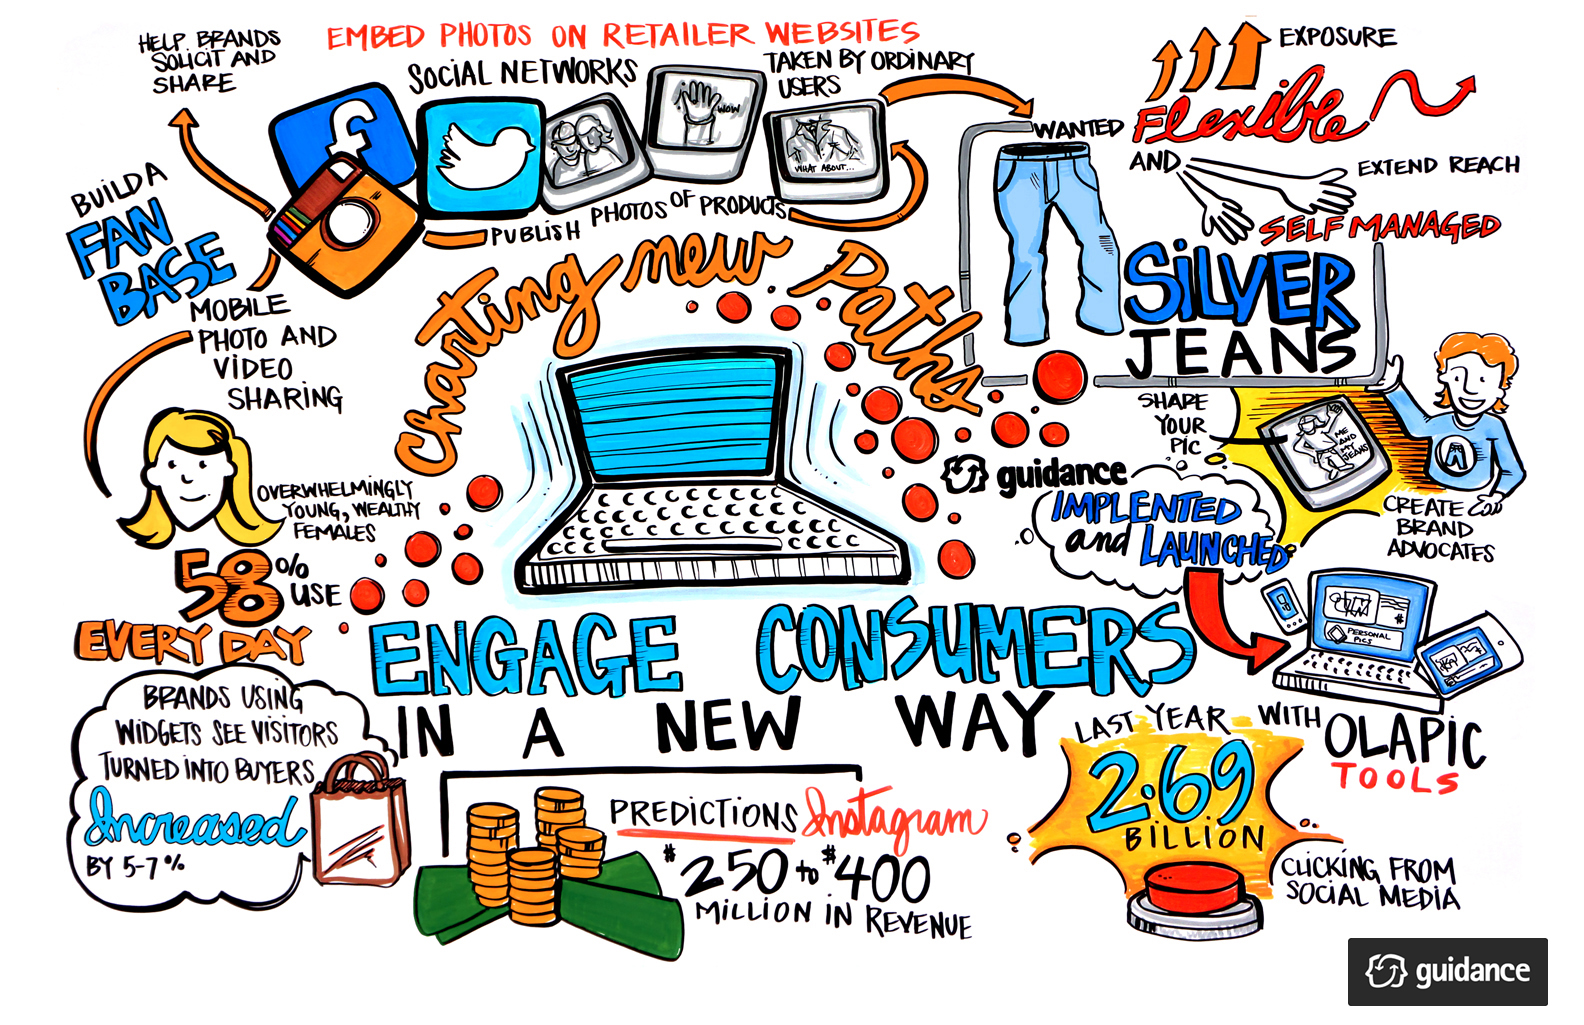 HELP BRANDS
SOLICIT AND
SHARE
EMBED PHOTOS ON RETAILER WEBSITES
SOCIAL NETWORKS
TAKEN BY ORDINARY
USERS
f
WOW
WHAT ABOUT...
PUBLISH PHOTOS OF PRODUCTS
BUILD A
FAN
BASE
MOBILE
PHOTO AND
VIDEO
SHARING
OVERWHELMINGLY
YOUNG, WEALTHY
FEMALES
58% USE
EVERY DAY
BRANDS USING
WIDGETS SEE VISITORS
TURNED INTO BUYERS
Increased
BY 5-7%
Charting new Paths
ENGAGE CONSUMERS
IN A NEW WAY
PREDICTIONS Instagram
$250 to $400
MILLION IN REVENUE
EXPOSURE
WANTED Flexible
AND
EXTEND REACH
SELF MANAGED
SILVER
JEANS
SHARE
YOUR
PIC
ME
AND
MY
JEANS
A
CREATE
BRAND
ADVOCATES
guidance
IMPLENTED
and LAUNCHED
PERSONAL
PICS
WITH OLAPIC
TOOLS
LAST YEAR
2.69
BILLION
CLICKING FROM
SOCIAL MEDIA
guidance